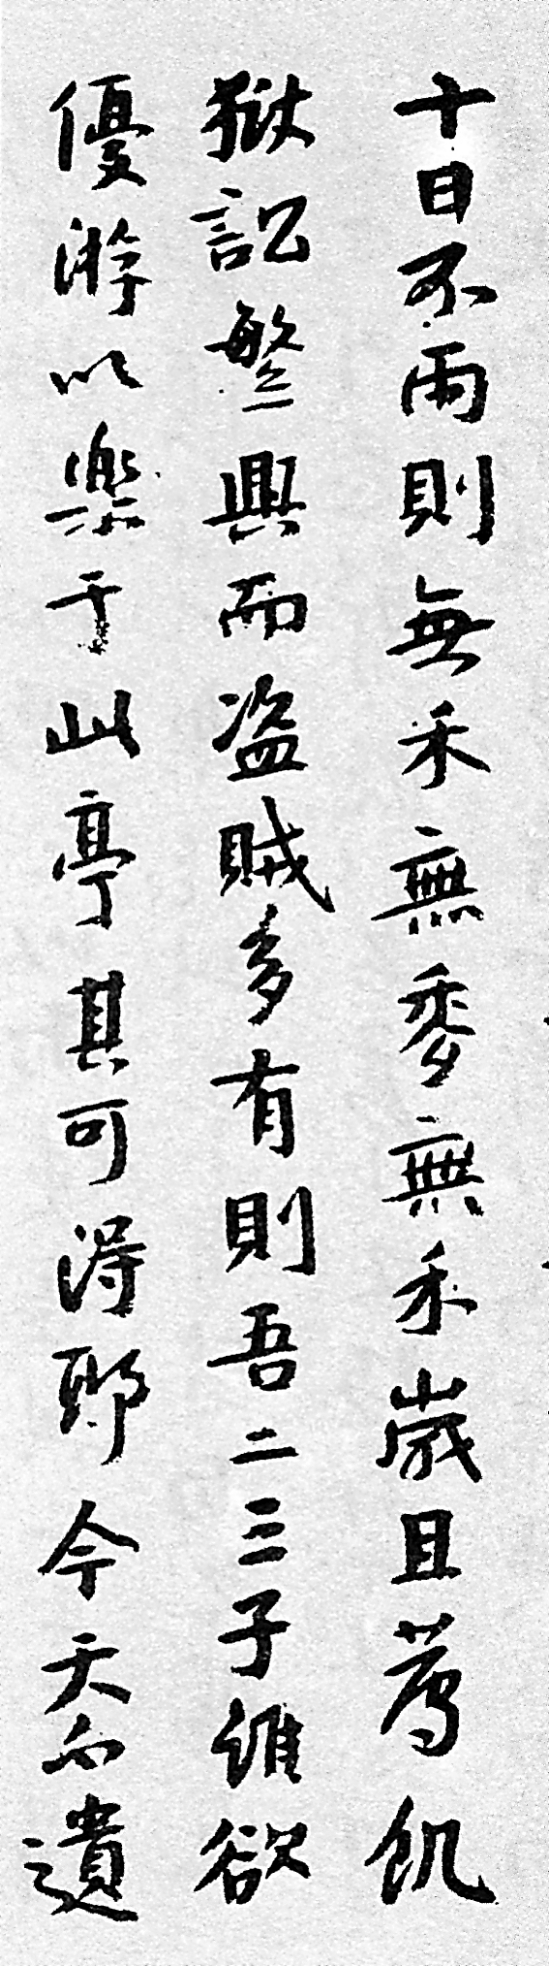 十日不雨則無禾無麥無禾歲且薦飢
獄訟繁興而盗賊多有則吾二三子雖欲
優游以樂于此亭其可得耶今天不遺